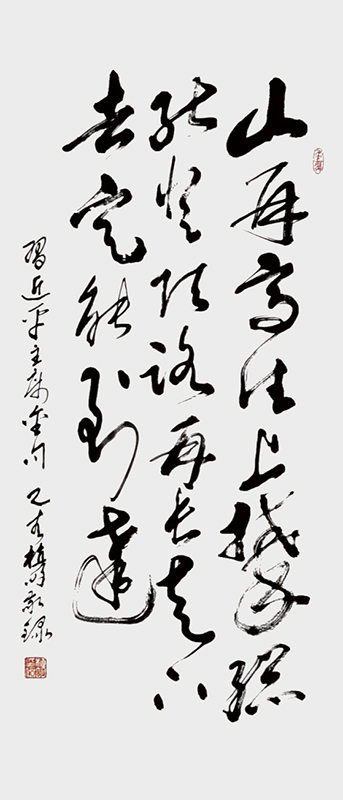 山再高往上攀总
能登顶路再长走下
去定能到达
习近平主席金句 乙 敬录